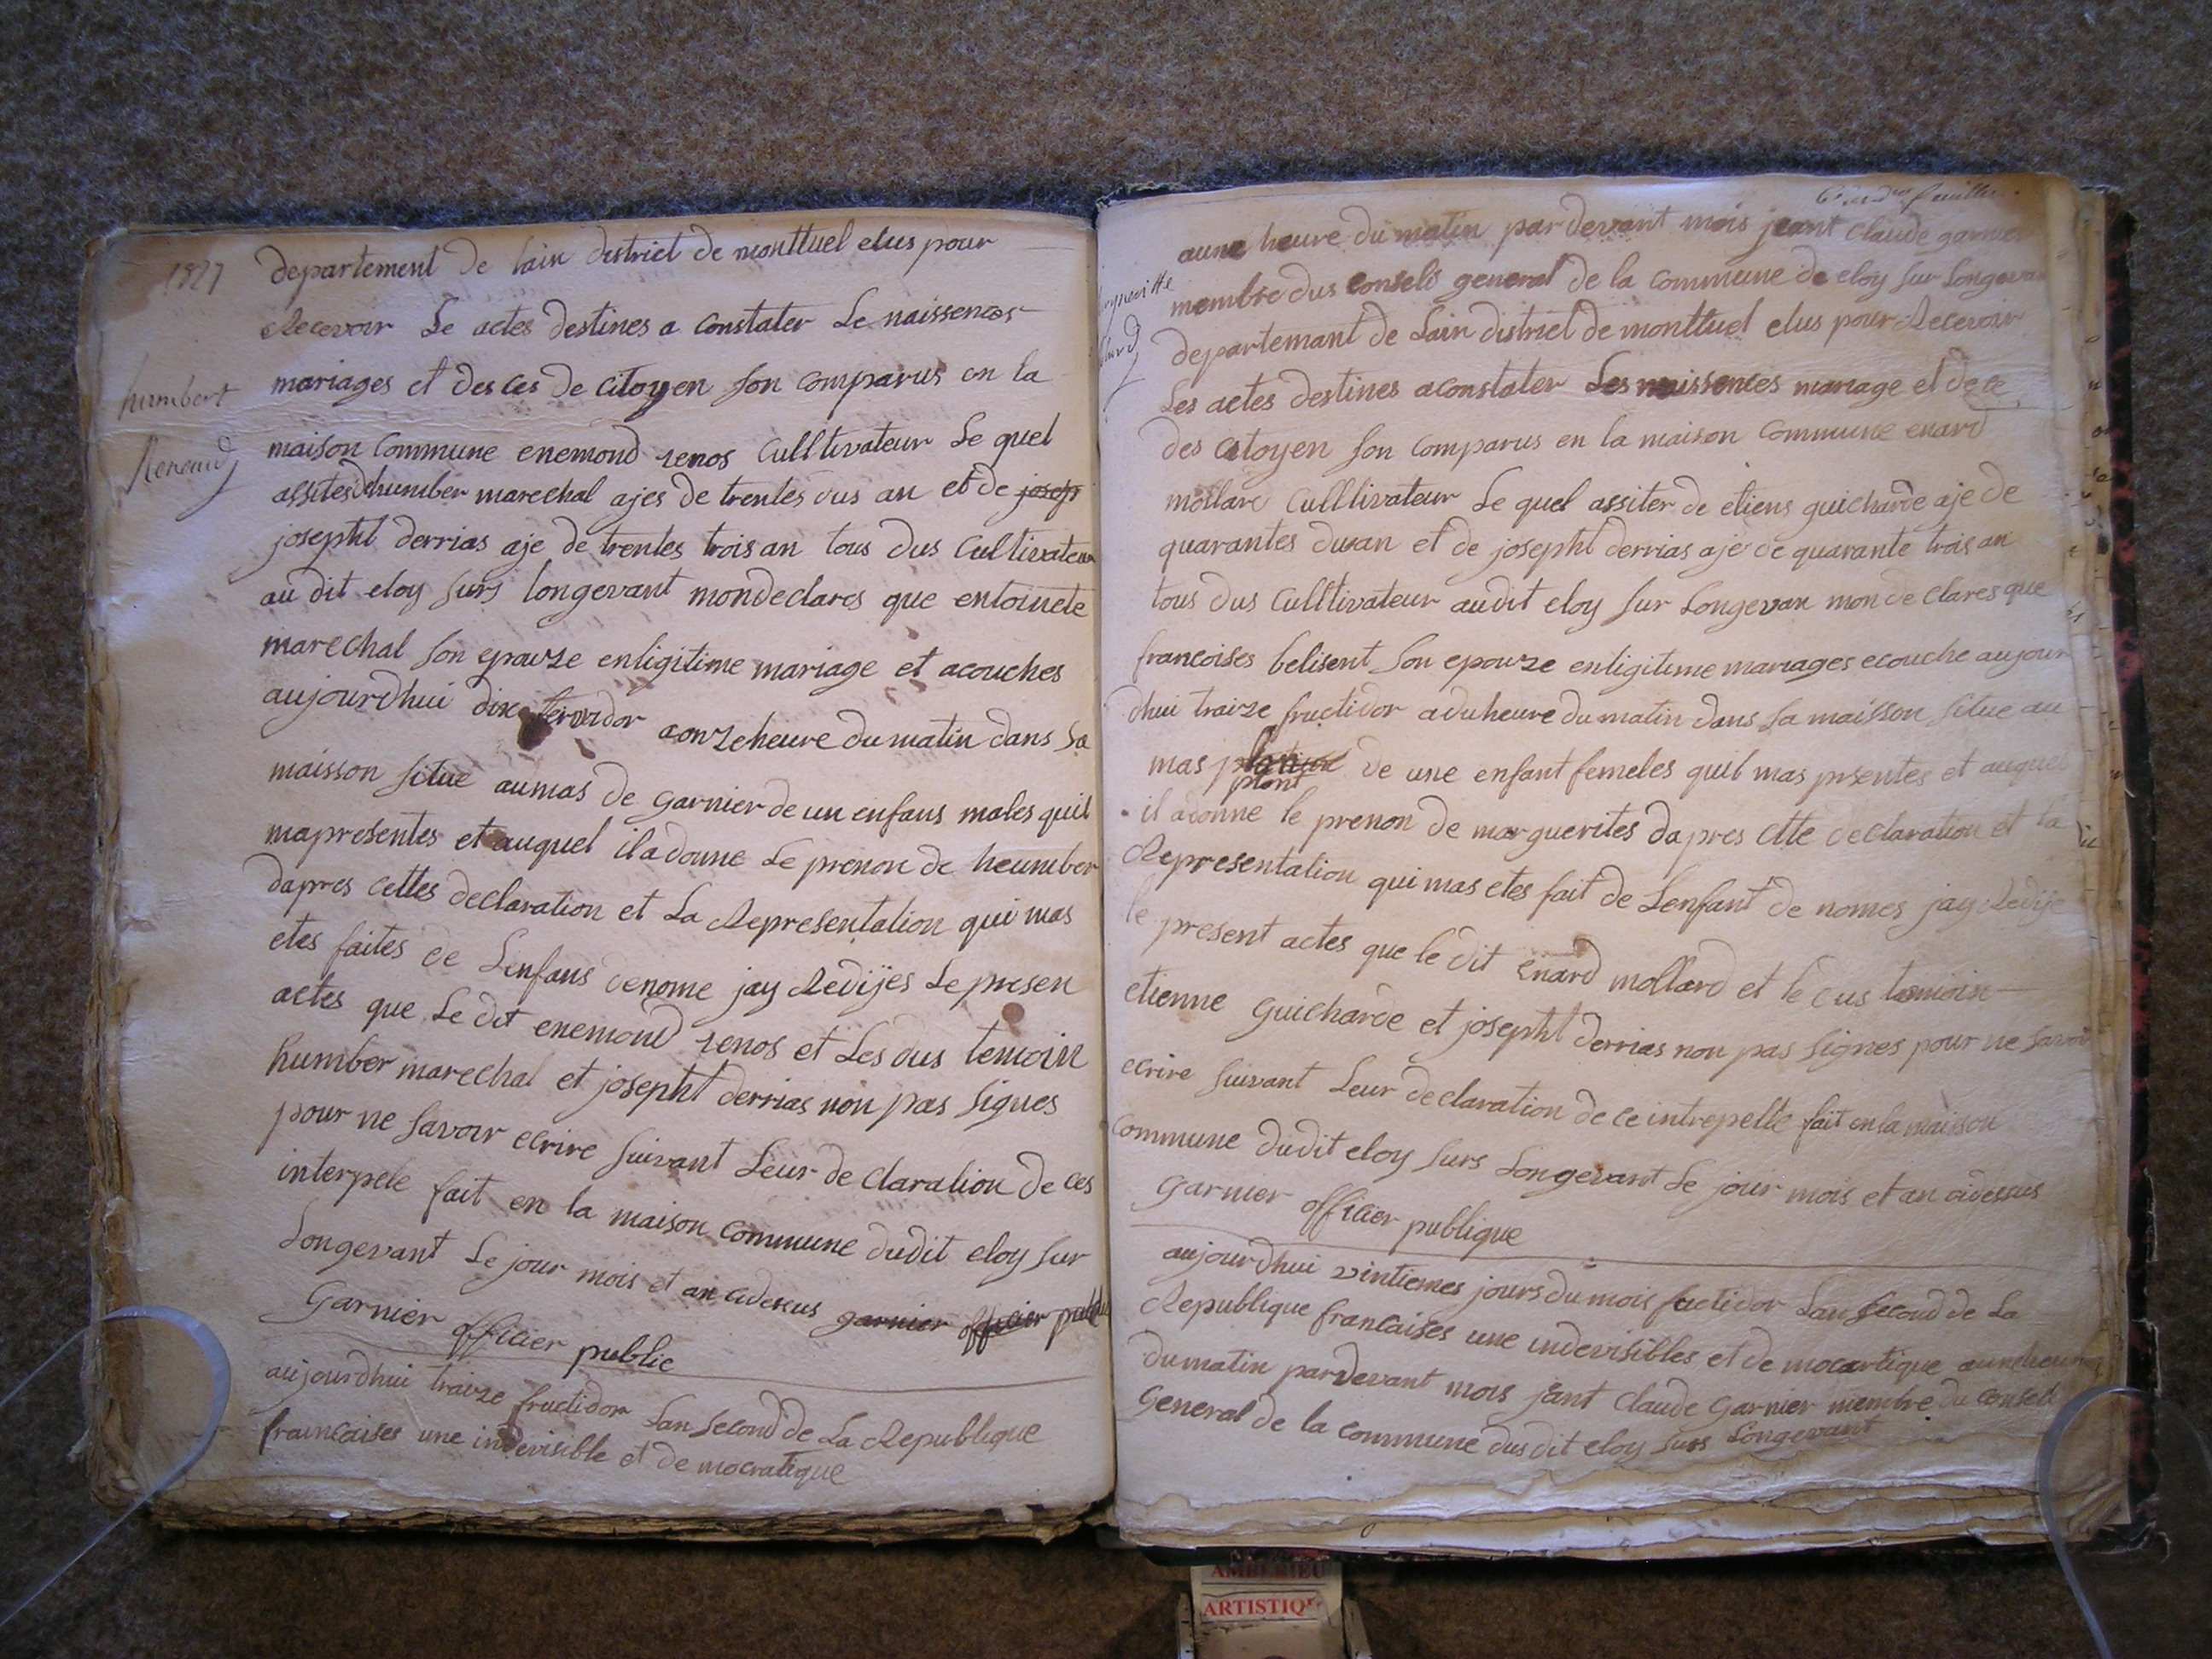 1827
departement de lain district de monttuel elus pour
Recevoir Le actes destines a Constater Le naissences
humbert
mariages et des ces de Citoyen son Comparus en la
Reneaud
maison Commune enemond renos Culltivateur Le quel
assites dhumber marechal ajes de trentes dus an et de joseph
josepht derrias aje de trentes trois an tous dus Cultivateur
au dit eloy surs longevant mondeclares que entoinete
marechal son epouze enligitime mariage et acouches
aujourdhui dix fervidor aonzeheure dumatin dans sa
maisson situe aumas de garnier de un enfans males quil
mapresentes et auquel il a donne Le prenon de heumber
dapres cettes declaration et La Representation qui mas
etes faites de Lenfans denome jay Redijes Le presen
actes que Le dit enemond renos et Les dus temoin
humber marechal et josepht derrias non pas signes
pour ne savoir ecrire suivant Leur de Claration de ces
interpele fait en la maison Commune dudit eloy sur
Longevant Le jour mois et an cidessus garnier officier public
Garnier officier public
aujourdhui traize fructidor Lan second de La Republique
francaises une indevisible et de mocratique
feuillet
aune heure du matin par devant mois jeant Claude garnier
membre dus Consels general de la Commune de eloy sur Longevan
departemant de Lain district de monttuel elus pour Recevoir
Les actes destines aconstater Les naissences mariage et de ce
des Citoyen son Comparus en la maison Commune enard
mollard Culltivateur Le quel assiter de etiens guicharde aje de
quarantes dusan et de josepht derrias aje de quarante trois an
tous dus Culltivateur audit eloy sur Longevan mon de Clares que
francoises belisent son epouze enligitime mariages ecouche aujour
dhui traize fructidor aduheure dumatin dans sa maisson situe au
mas plant de une enfant femeles quil mas prsentes et auquel
il adonne le prenon de marguerites dapres Ctte declaration et la
Representation qui mas etes fait de Lenfant de nomes jay Redije
le present actes que le dit enard mollard et le dus temoin
etienne guicharde et josepht derrias non pas signes pour ne savoir
ecrire suivant Leur declaration de ce intrepelle fait enla maison
Commune dudit eloy surs Longevant Le jour mois et an cidessus
garnier officier publique
aujourdhui vintiemes jours du mois fuctidor Lan second de La
Republique francaises une indevisibles et de mocartique auneheure
dumatin pardevant mois jant Claude Garnier membre du Conseil
General de la Commune dus dit eloy surs Longevant
AMBERIEU
ARTISTIQUE